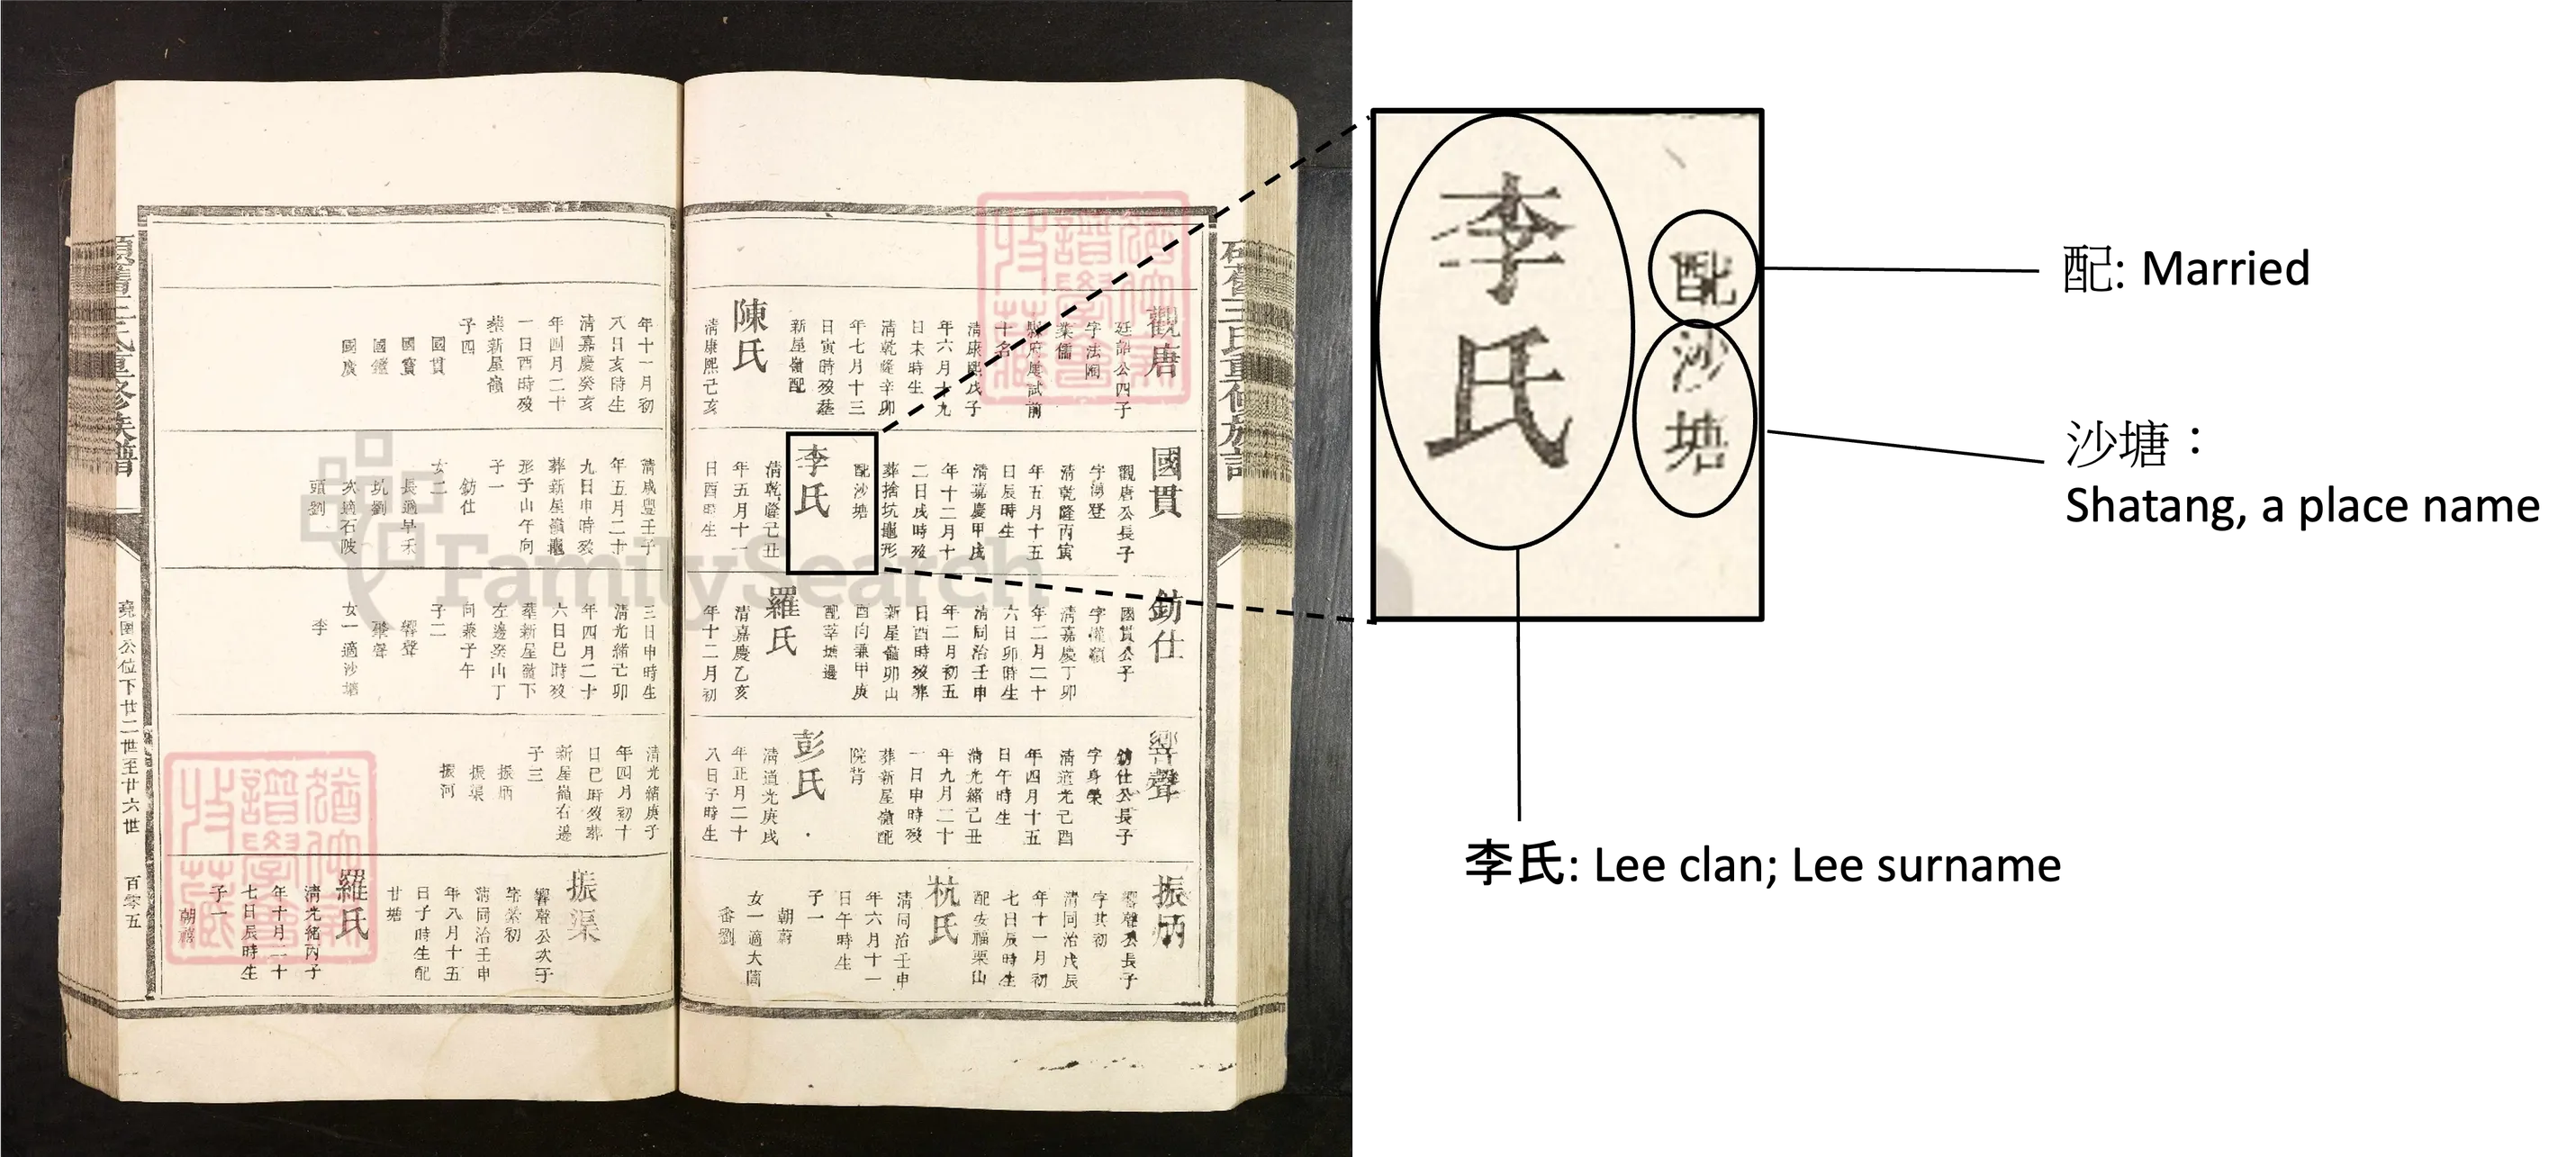 觀唐
廷詔公四子
字法
業儒
府屢試前
十名
清康熙戊子
年六月十九
日未時生
清乾隆辛卯
年七月十三
日寅時歿葬
新屋嶺配
陳氏
清康熙己亥
年十一月初
八日亥時生
清嘉慶癸亥
年四月二十
一日酉時歿
葬新屋嶺
子四
國貫
國寶
國鑑
國廣
國貫
觀唐公長子
字湧登
清乾隆丙寅
年五月十五
日辰時生
清嘉慶甲戌
年十二月十
二日戌時歿
葬捨坑龜形
配沙塘
李氏
清乾隆己丑
年五月十一
日酉時生
清咸豐壬子
年五月二十
九日申時歿
葬新屋嶺龜
形子山午向
子一
鈁仕
女二
長適早禾
坑劉
次適石陂
頭劉
鈁仕
國貫公子
字
清嘉慶丁卯
年二月二十
六日卯時生
清同治壬申
年二月初五
日酉時歿葬
新屋嶺卯山
酉向兼甲庚
配莘塘邊
羅氏
清嘉慶乙亥
年十二月初
三日申時生
清光緒己卯
年四月二十
六日巳時歿
葬新屋嶺下
左邊癸山丁
向兼子午
子二
響聲
聲
女一適沙塘
李
響聲
鈁仕公長子
字身榮
清道光己酉
年四月十五
日午時生
清光緒己丑
年九月二十
一日申時歿
葬新屋嶺配
院背
彭氏
清道光庚戌
年正月二十
八日子時生
清光緒庚子
年四月初十
日巳時歿葬
新屋嶺右邊
子三
振炳
振渠
振河
振炳
響聲公長子
字其初
清同治戊辰
年十一月初
七日辰時生
配安福栗山
杭氏
清同治壬申
年六月十一
日午時生
子一
朝蔚
女一適大
劉
振渠
響聲公次子
字棨初
清同治壬申
年八月十五
日子時生配
甘塘
羅氏
清光緒丙子
年十月二十
七日辰時生
子一
朝禧
堯園公位下廿二世至廿六世
百零五
FamilySearch
李氏
配沙塘
配: Married
沙塘：
Shatang, a place name
李氏: Lee clan; Lee surname